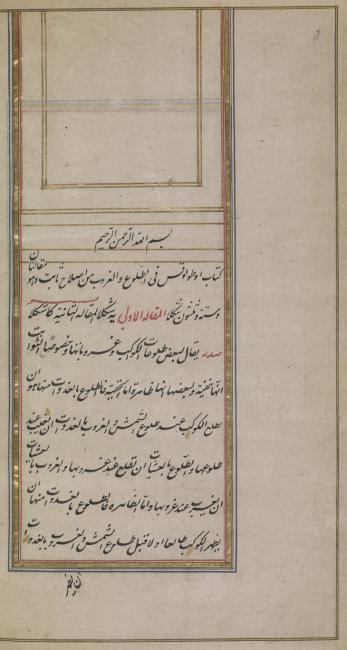 بسم الله الرحمن الرحيم
كتاب اوطولوقس فى الطلوع والغروب من اصلاح ثابت وهو مقالتان
وستة وثلثون شكلا المقاله الاولى شكلا المقاله الثانية كا شكلا
صدر يقال لبعض طلوعات الكواكب وغروباتها وخصوصا الثوابت
انها خفية ولبعضها انها ظاهرة اما الخفية فالطلوع بالغدوات منها هو ان
يطلع الكوكب عند طلوع الشمس والغروب بالغدوات ان يغيب عند
طلوعها والطلوع بالعشيات ان تطلع عند غروبها والغروب بالعشيات
ان يغرب عند غروبها واما الظاهره فالطلوع بالغدوات منها ان
يظهر الكوكب طالعا اولا قبل طلوع الشمس والغروب بالغدوات